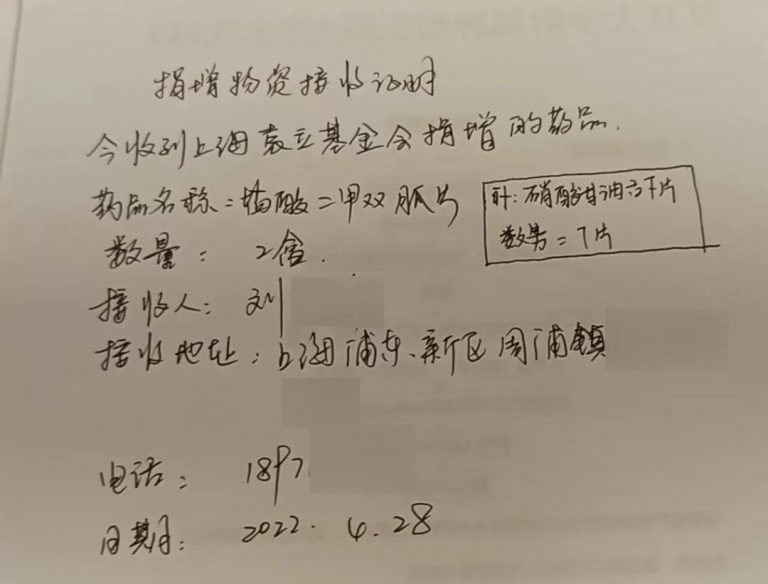 捐增物资接收证明
今收到上海袁立基金会捐增的药品.
药品名称:酸二甲双胍片
叶:硝酸甘油片
数量:2
数:7片
接收人:刘
接收地址:上海浦东、新区周浦镇
电话:1897
日期:2022.4.28